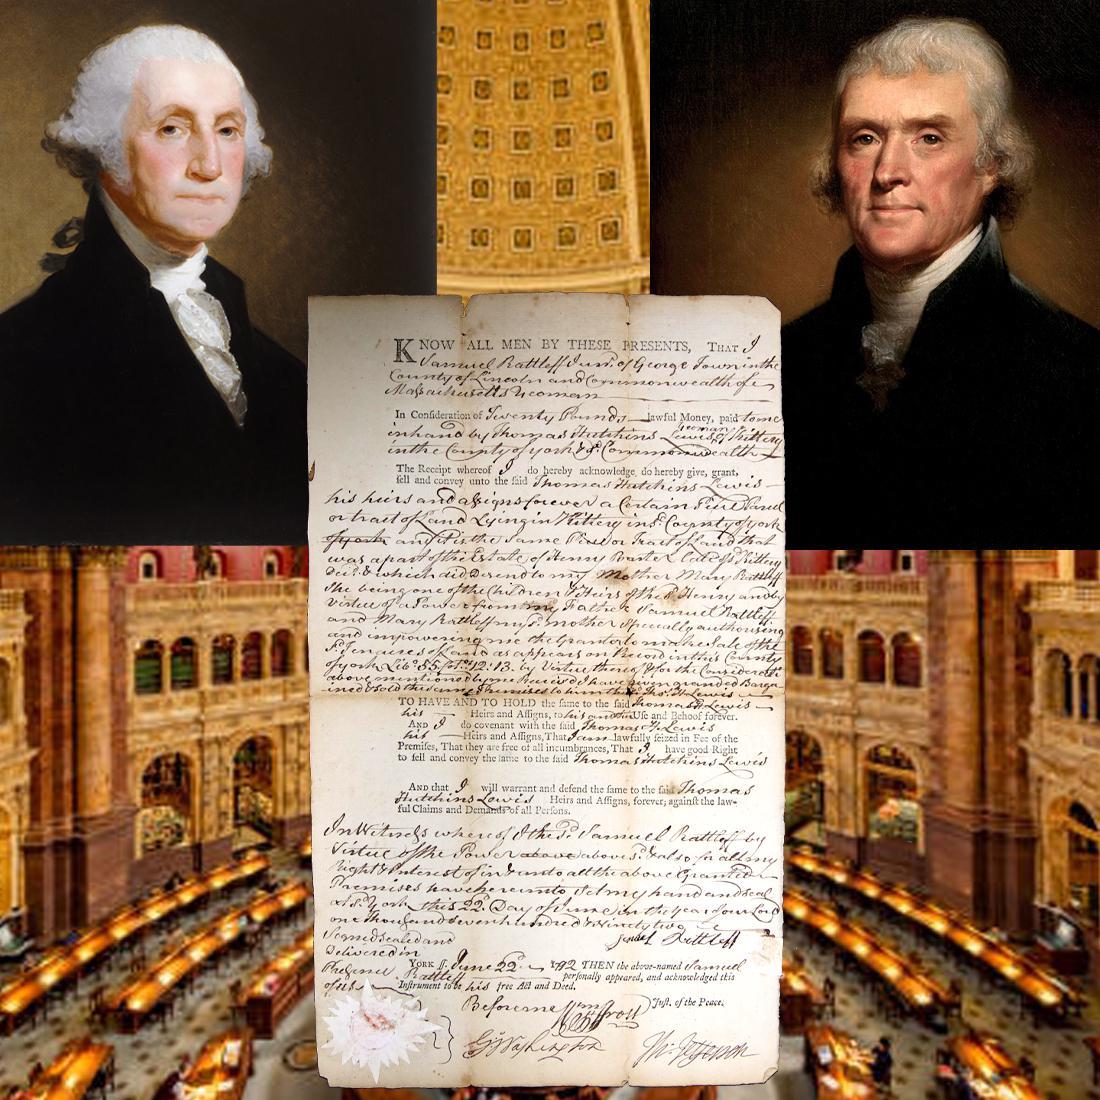 KNOW ALL MEN BY THESE PRESENTS, THAT I
Samuel Rattleff Junr. of George Town in the
County of Lincoln and Commonwealth of
Massachusetts Yeoman
In Consideration of Twenty Pounds lawful Money, paid to me
yeoman
in hand by Thomas Hutchins Lewis of Kittery
in the County of York & Commonwealth
The Receipt whereof I do hereby acknowledge, do hereby give, grant,
sell and convey unto the said Thomas Hutchins Lewis
his heirs and assigns forever a Certain Piece Parcel
or tract of Land Lying in Kittery in sd. County of york
and it is the Same Piece or Tract of land that
was a part of the Estate of Henry Baxter Late of sd Kittery
Decd. & which did Descend to my Mother Mary Rattleff
She being one of the Children & Heirs of the sd. Henry and by
Virtue of a Power from my Father Samuel Rattleff
and Mary Rattleff my sd. mother Specially authorising
and impowering me the Grantor to make Sale of the
sd. Tenures of Land as appears on Record in this County
of york Libo. 55 fol. 12.13. by Virtue thereof & for the Consideration
above mentioned by me Received I have given granted Barga
ined & sold the same Premises to him the sd. Thos. H. Lewis
TO HAVE AND TO HOLD the same to the said Thomas H. Lewis
his Heirs and Assigns, to his and their Use and Behoof forever.
AND I do covenant with the said Thomas H. Lewis
his Heirs and Assigns, That I am lawfully seized in Fee of the
Premises, That they are free of all incumbrances, That I have good Right
to sell and convey the same to the said Thomas Hutchins Lewis
And that I will warrant and defend the same to the said Thomas
Hutchins Lewis Heirs and Assigns, forever; against the law-
ful Claims and Demands of all Persons.
In Witness whereof I the sd. Samuel Rattleff by
Virtue of the Power above above sd. & also for all my
Right & Interest of in & unto all the above Granted
Premises have hereunto Set my hand and Seal
at sd. York this 22d. Day of June in the year of our Lord
one Thousand seven hundred & Ninety two
Signed sealed and
Delivered in
Presence
of us
Samel Rattleff
YORK ss. June 22d. 1792 THEN the above-named Samuel
Rattleff personally appeared, and acknowledged this
Instrument to be his free Act and Deed.
Before me Wm Frost Just. of the Peace.
G. Washington
Th. Jefferson